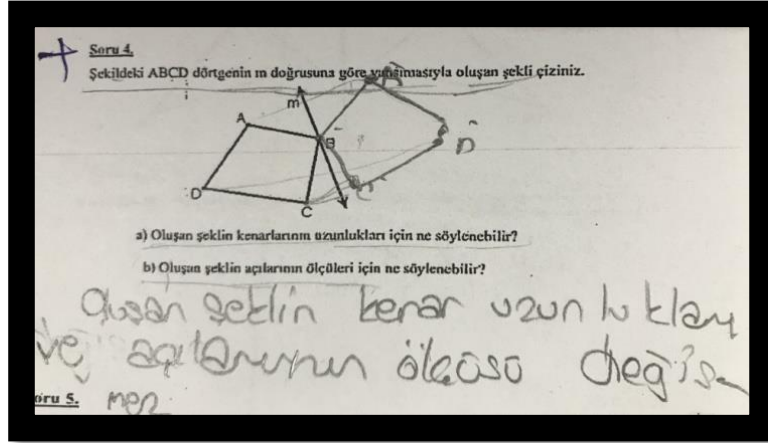 Soru 4.
Şekildeki ABCD dörtgenin m doğrusuna göre yansımasıyla oluşan şekli çiziniz.
A
m
A
B
D
D
C
C
a) Oluşan şeklin kenarlarının uzunlukları için ne söylenebilir?
b) Oluşan şeklin açılarının ölçüleri için ne söylenebilir?
Oluşan şeklin kenar uzunlukları
ve açılarının ölçüsü değiş-
mez
oru 5.